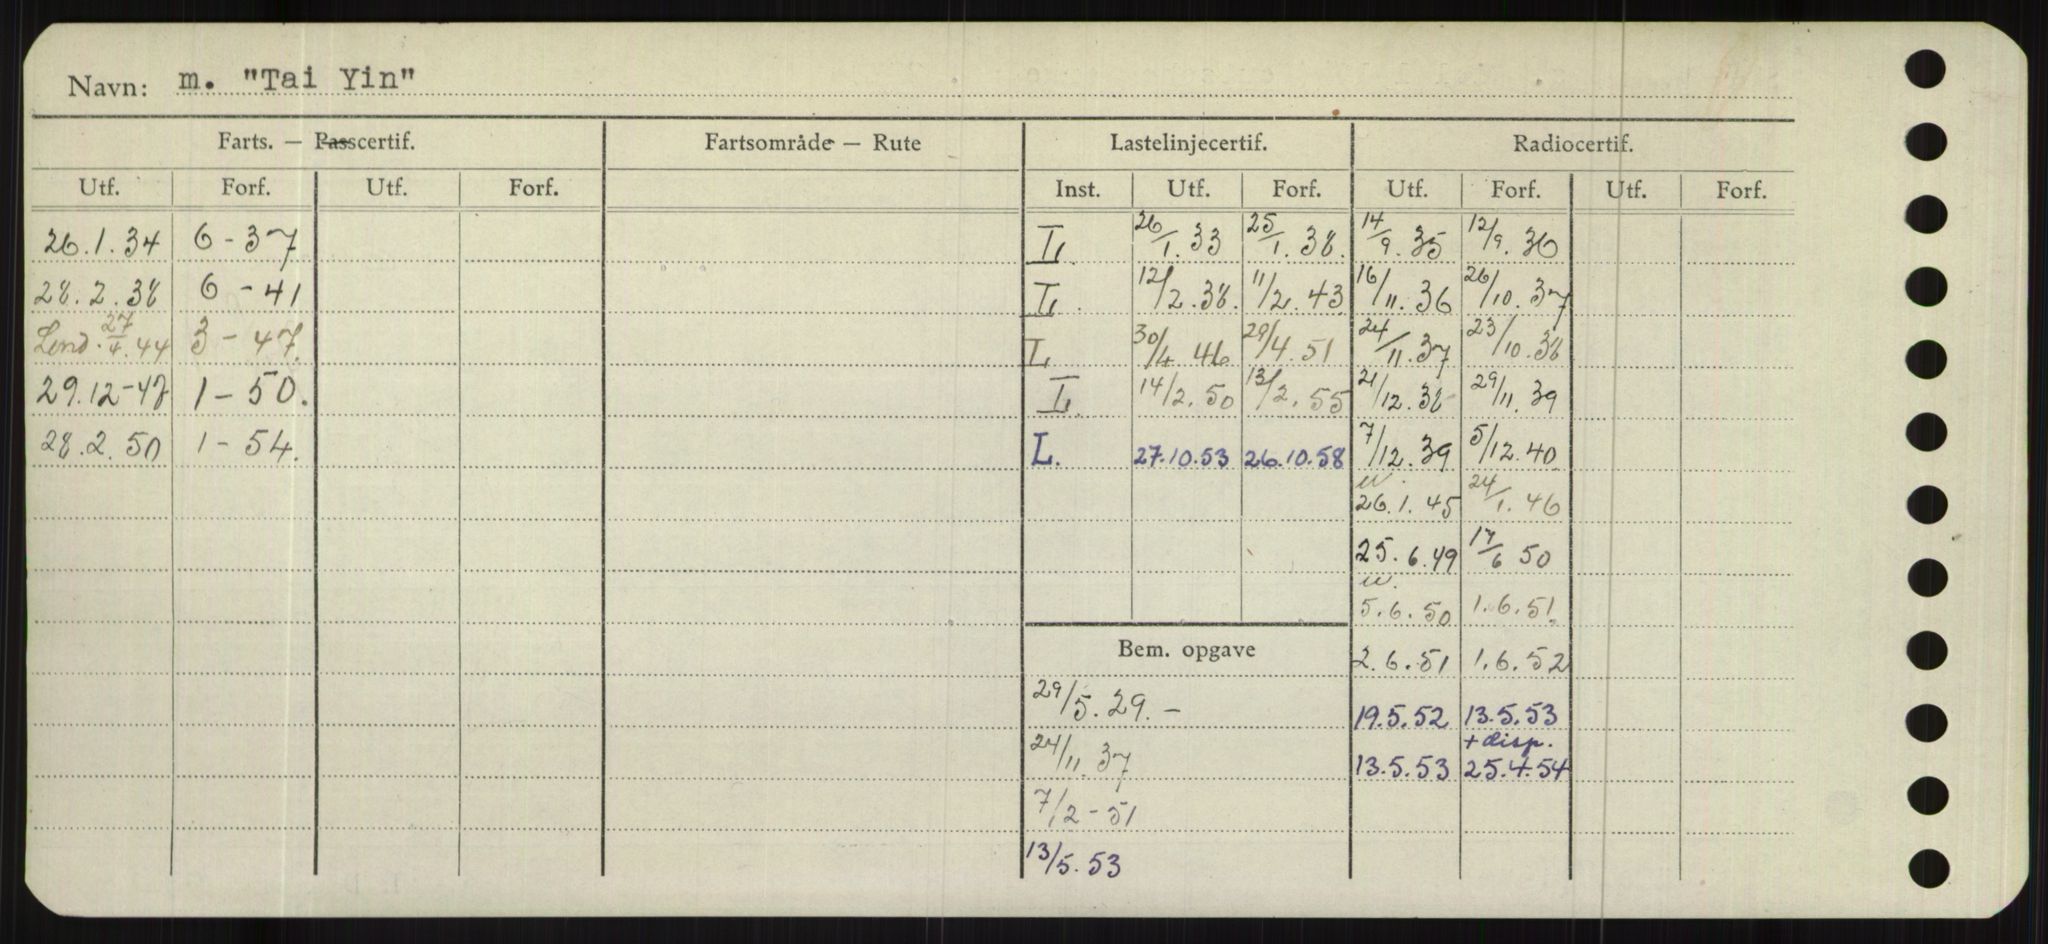 Navn: m. "Tai Yin"
Farts. — Passcertif. Fartsområde — Rute Lastelinjecertif. Radiocertif.
Utf. Forf. Utf. Forf. Inst. Utf. Forf. Utf. Forf. Utf. Forf.
26.1.34 6-37 L. 26/1.33 25/1.38. 14/9.35 12/9.36
28.2.38 6-41 L. 12/2.38. 11/2.43 16/11.36 26/10.37
Lond. 27/4.44 3-47. L 30/4.46 29/4.51 24/11.37 23/10.38
29.12-47 1-50. L. 14/2.50 13/2.55 21/12.38 29/11.39
28.2.50 1-54. L. 27.10.53 26.10.58 7/12.39 5/12.40
26.1.45 24/1.46
25.6.49 17/6 50
5.6.50 1.6.51.
Bem. opgave 2.6.51 1.6.52
29/5.29.- 19.5.52 13.5.53
24/11.37 13.5.53 + disp. 25.4.54
7/2-51
13/5.53